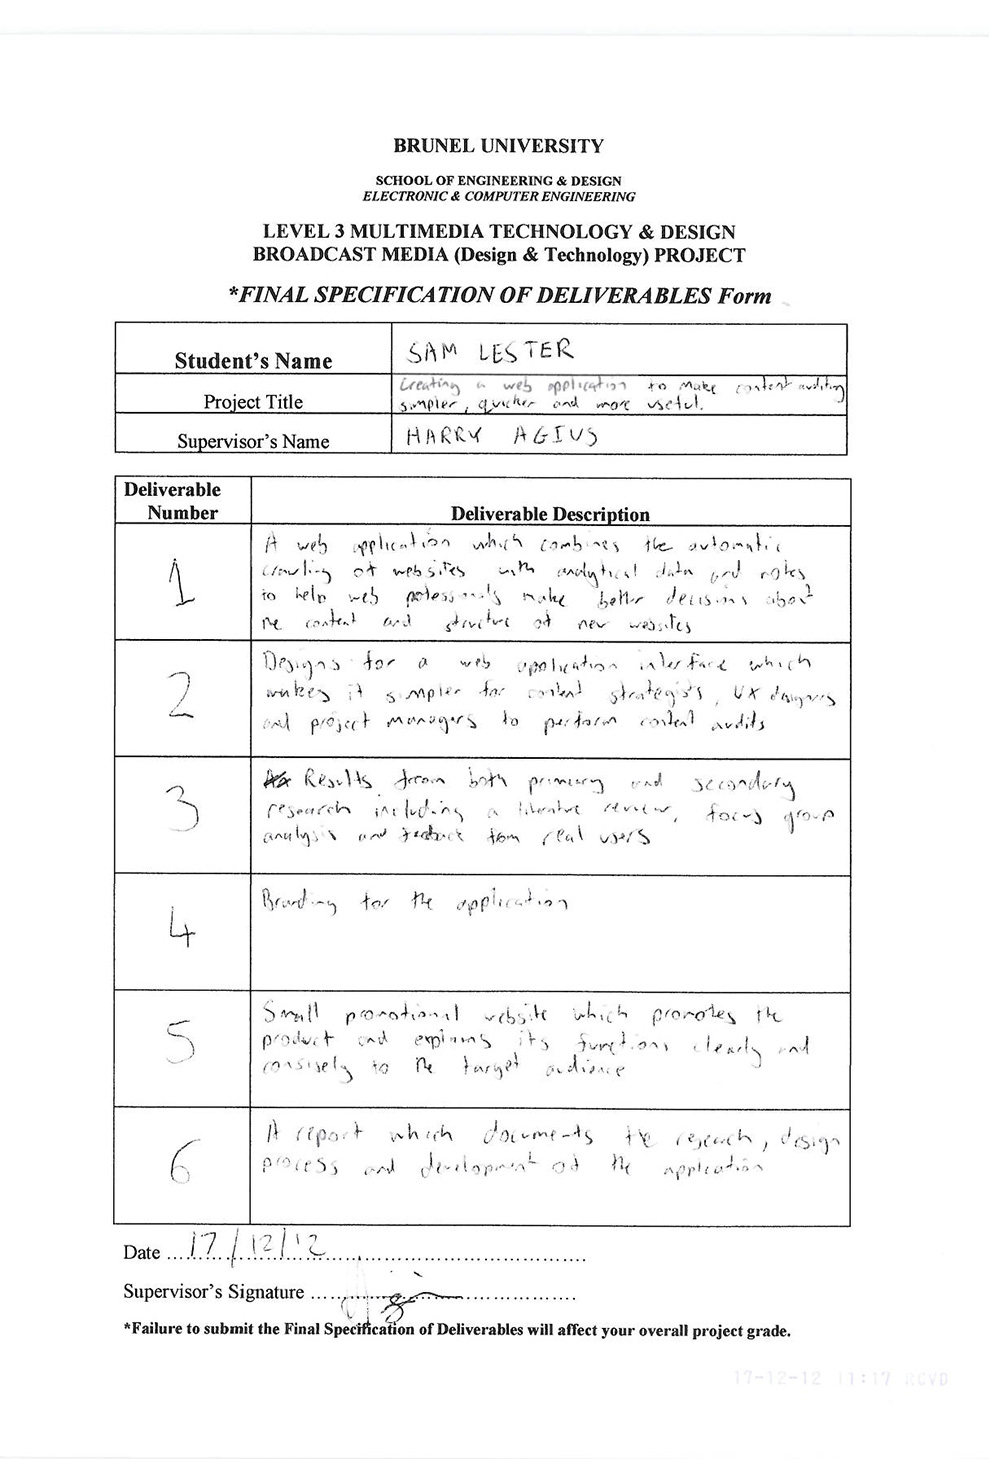 BRUNEL UNIVERSITY
SCHOOL OF ENGINEERING & DESIGN
ELECTRONIC & COMPUTER ENGINEERING
LEVEL 3 MULTIMEDIA TECHNOLOGY & DESIGN
BROADCAST MEDIA (Design & Technology) PROJECT
*FINAL SPECIFICATION OF DELIVERABLES Form
Student's Name SAM LESTER
Project Title Creating a web application to make content auditing
simpler, quicker and more useful.
Supervisor's Name HARRY AGIUS
Deliverable
Number Deliverable Description
1
A web application which combines the automatic
crawling of websites with analytical data and notes
to help web potessionals make better decisions about
the content and structure of new websites
2
Designs for a web application interface which
makes it simpler for content strategists, UX designers
and project managers to perform content audits
3
Results from both primary and secondary
research including a literature review, focus group
analysis and feedback from real users
4
Branding for the application
5
Small promotional website which promotes the
product and explains its functions clearly and
consisely to the target audience
6
A report which documents the research, design
process and development of the application
Date 17/12/12
Supervisor's Signature
*Failure to submit the Final Specification of Deliverables will affect your overall project grade.
17-12-12 11:17 RCVD